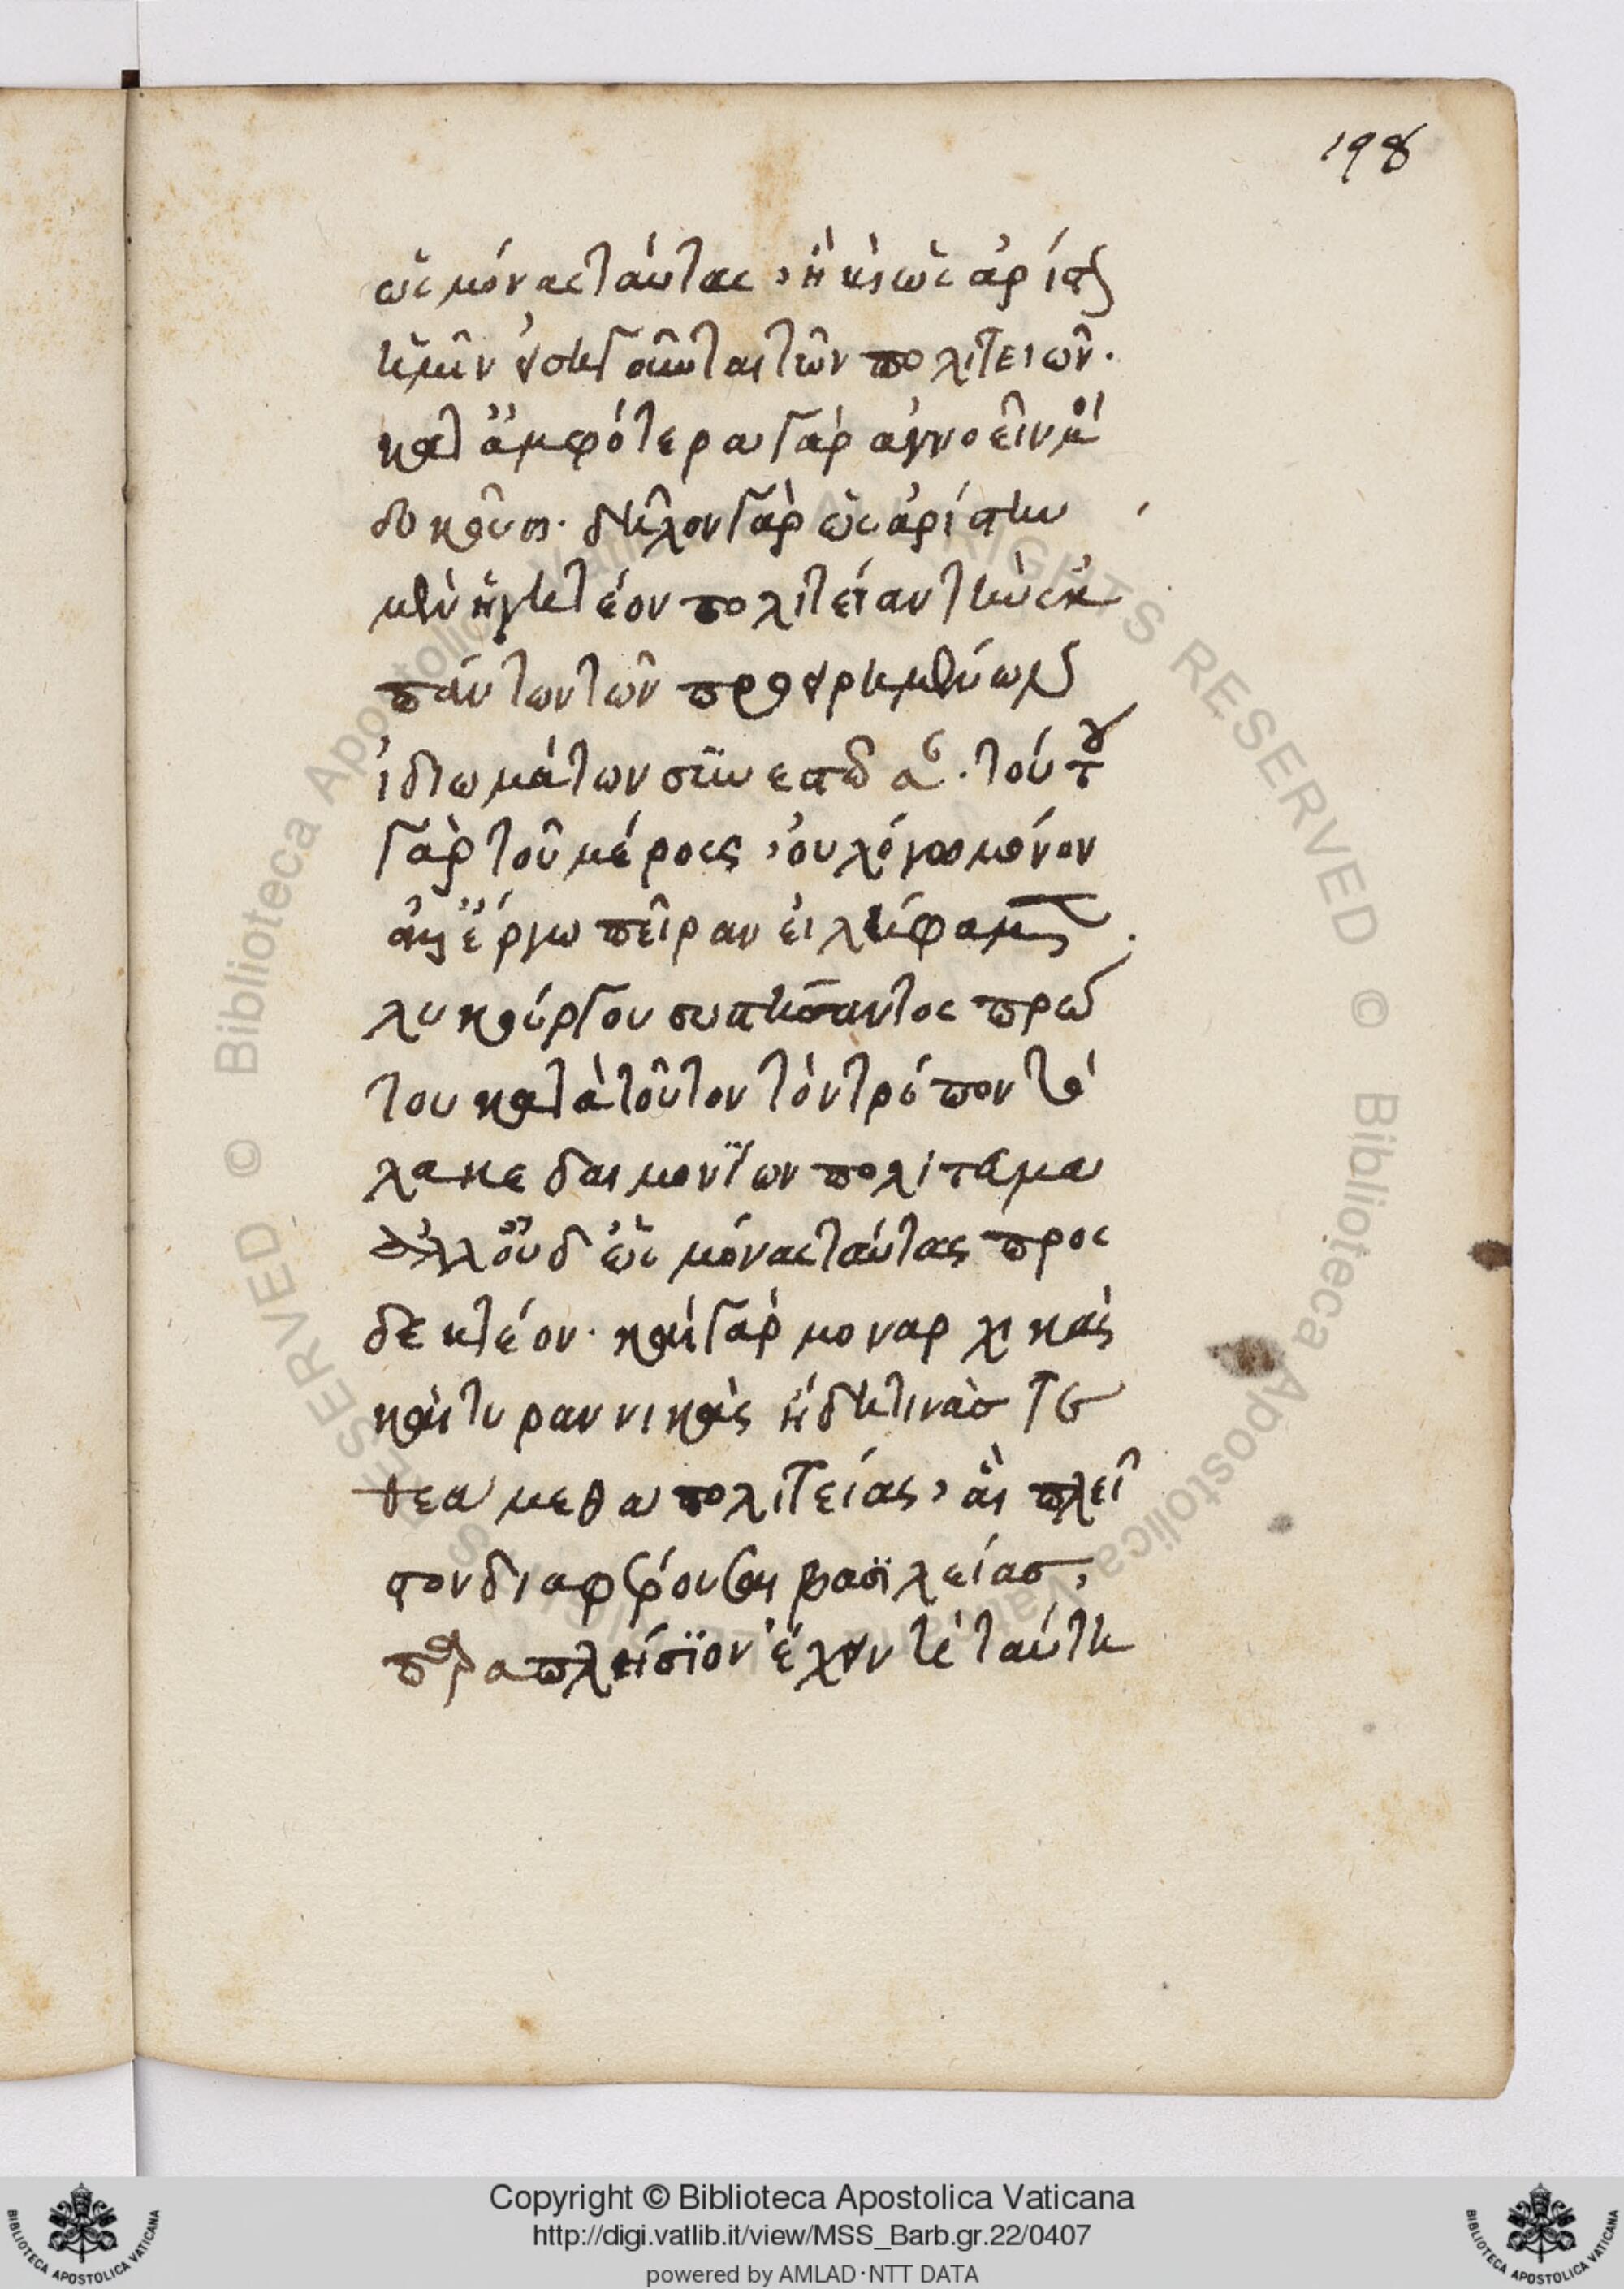 198
ὡς μόνας ταύτας, ἢ καὶ ὡς ἀρίστας
ἡμῖν εἰσηγοῦνται τῶν πολιτειῶν.
κατ' ἀμφότερα γὰρ ἀγνοεῖν μοι
δοκοῦσι. δῆλον γὰρ ὡς ἀρίστην
μὲν ἡγητέον πολιτείαν τὴν ἐκ
πάντων τῶν προειρημένων
ἰδιωμάτων συνεστῶσαν. τούτου
γὰρ τοῦ μέρους, οὐ λόγω μόνον
ἀλλ' ἔργω πεῖραν εἰλήφαμεν
λυκούργου συστήσαντος πρώ
του κατὰ τοῦτον τὸν τρόπον τὸ
λακεδαιμονίων πολίτευμα
ἀλλ' οὐδ' ὡς μόνας ταύτας προς
δεκτέον. καὶ γὰρ μοναρχικὰς
καὶ τυραννικὰς ἤδη τινὰς τε
θεάμεθα πολιτείας, αἳ πλεῖ
στον διαφέρουσαι βασιλείας,
παραπλήσιον ἔχειν τὶ ταύτη
Copyright © Biblioteca Apostolica Vaticana
http://digi.vatlib.it/view/MSS_Barb.gr.22/0407
powered by AMLAD·NTT DATA